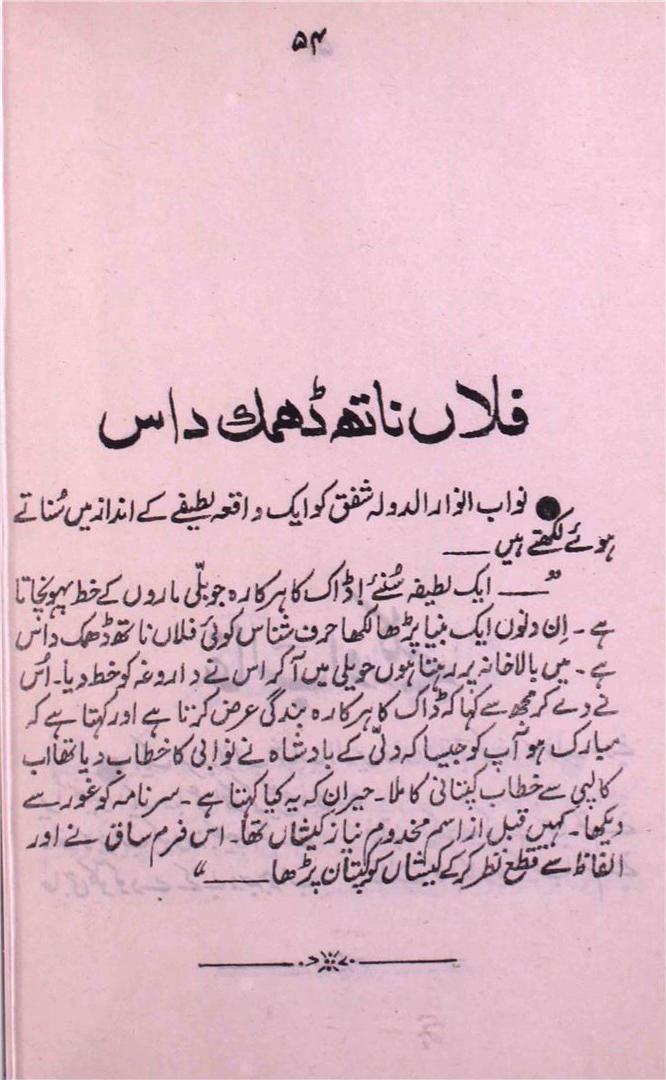 ۵۴
فلاں ناتھ ڈھمک داس
● نواب انوار الدولہ شفق کو ایک واقعہ لطیفے کے انداز میں سُناتے
ہوئے لکھتے ہیں ——
”—— ایک لطیفہ سُنئے! ڈاک کا ہرکارہ جو بلّی ماروں کے خط پہونچاتا
ہے۔ اِن دنوں ایک بنیا پڑھا لکھا حرف شناس کوئی فلاں ناتھ ڈھمک داس
ہے۔ میں بالا خانہ پر رہتا ہوں حویلی میں آ کر اس نے داروغہ کو خط دیا۔ اُس
نے دے کر مجھ سے کہا کہ ڈاک کا ہرکارہ بندگی عرض کرتا ہے اور کہتا ہے کہ
مبارک ہو آپ کو جیسا کہ دلّی کے بادشاہ نے نوابی کا خطاب دیا تھا اب
کالپی سے خطاب کپتانی کا ملا۔ حیران کہ یہ کیا کہتا ہے۔ سرنامہ کو غور سے
دیکھا۔ کہیں قبل از اسم مخدوم نیاز کیشاں تھا۔ اس فرم ساق نے اور
الفاظ سے قطع نظر کر کے کیشاں کو کپتان پڑھا ——“